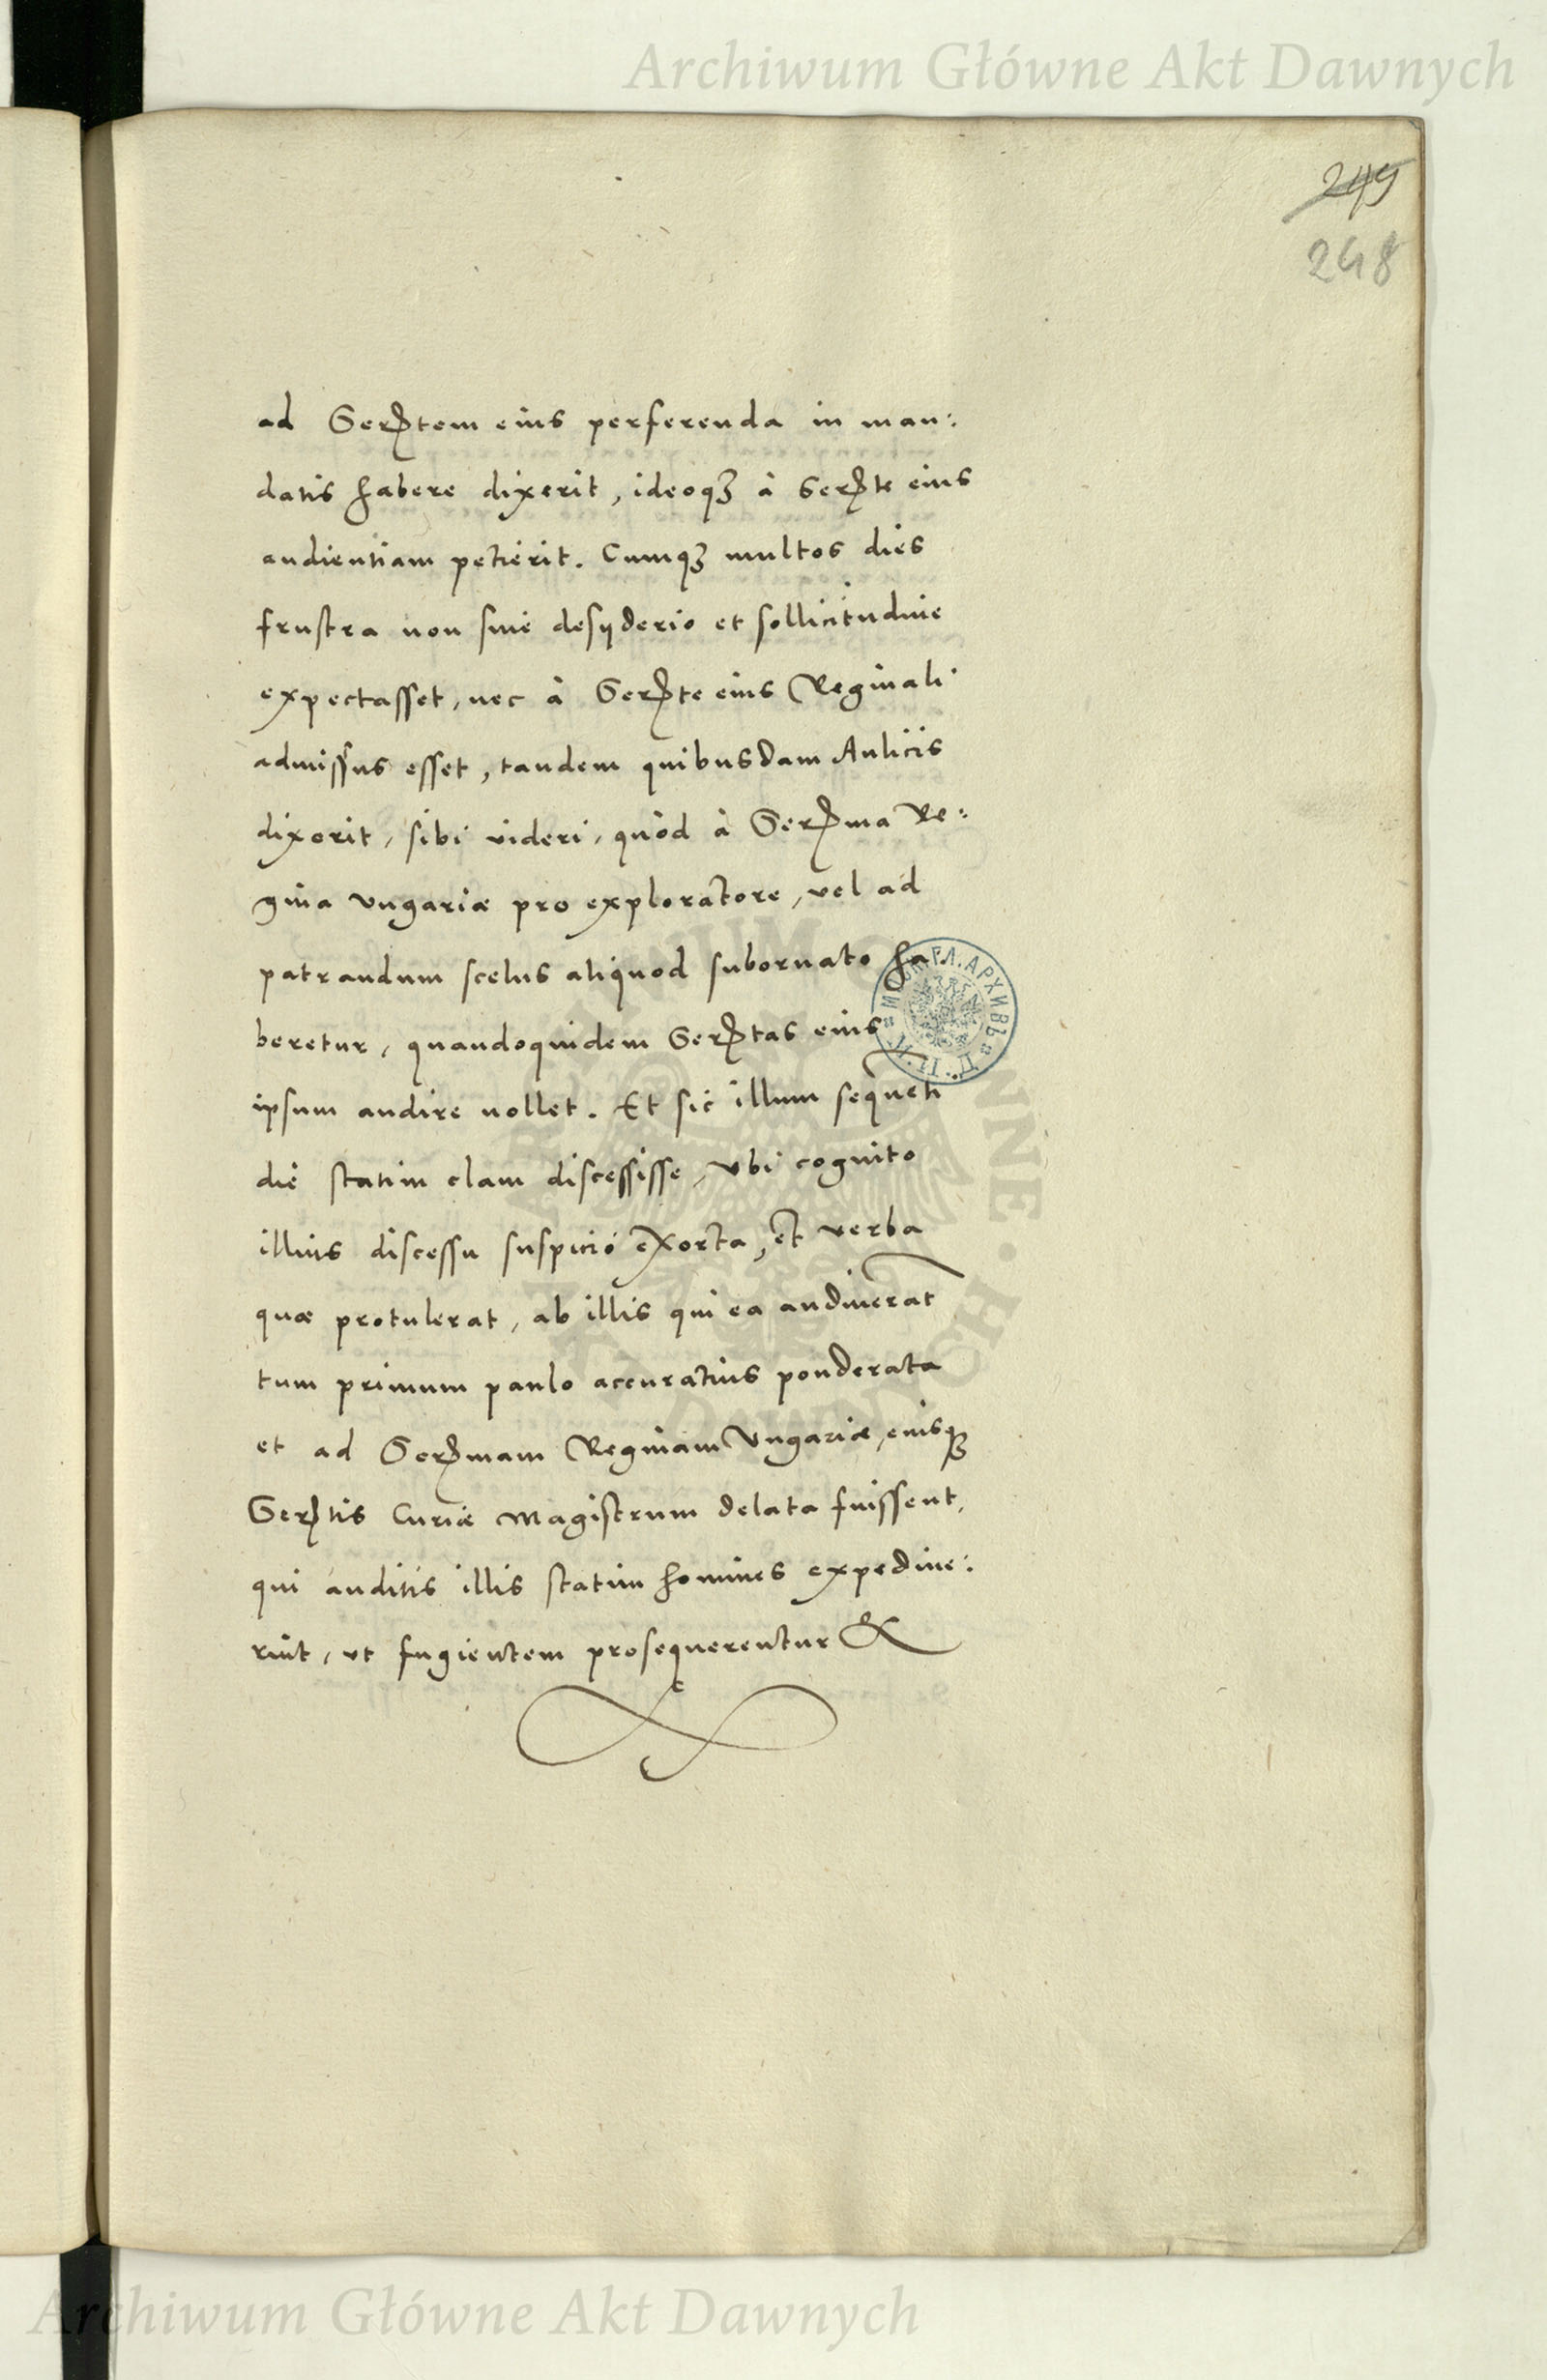 Archiwum Główne Akt Dawnych
249
248
ad Serᵗtem eius perferenda in man:
datis habere dixerit, ideoqꝫ à Serᵗte eius
audientiam petierit. Cumqꝫ multos dies
frustra non sine desyderio et sollicitudine
expectasset, nec à Serᵗte eius Reginali
admissus esset, tandem quibusdam Aulicis
dixerit, sibi videri, quòd à Serma Re:
gina Vngariæ pro exploratore, vel ad
patrandum scelus aliquod subornato ha
beretur, quandoquidem Sertas eius
ipsum audire nollet. Et sic illum sequēti
die statim clam discessisse, vbi cognito
illius discessu suspicio exorta, et verba
quæ protulerat, ab illis qui ea audiuerāt
tum primum paulo accuratius ponderata
et ad Sermam Reginam Vngariæ, eiusqꝫ
Sertis Curiæ Magistrum delata fuissent,
qui auditis illis statim homines expediue:
rint, vt fugientem prosequerentur &
Archiwum Główne Akt Dawnych